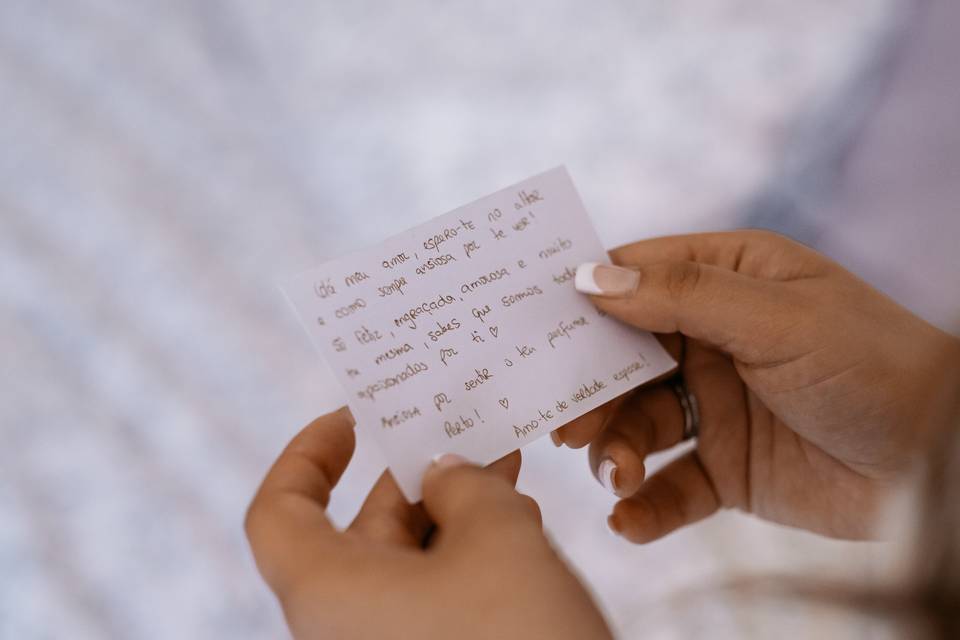 Olá meu amor, espero-te no altar
e como sempre ansiosa por te ver!
Sê feliz, engraçada, amorosa e muito
tu mesma, sabes que somos todos
apaixonados por ti ♡
Ansiosa por sentir o teu perfume
Perto! ♡
Amo-te de verdade esposa!